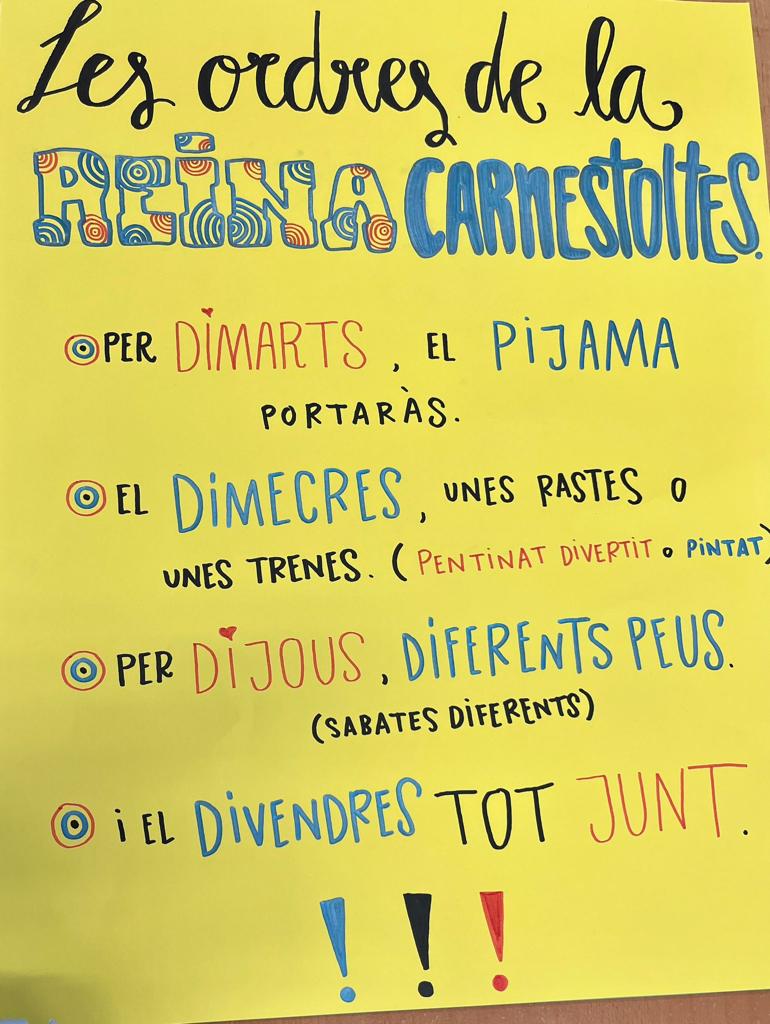 Les ordres de la
REINA CARNESTOLTES.
PER DIMARTS, EL PIJAMA
PORTARÀS.
EL DIMECRES, UNES RASTES O
UNES TRENES. (PENTINAT DIVERTIT o PINTAT)
PER DIJOUS, DIFERENTS PEUS.
(SABATES DIFERENTS)
i EL DIVENDRES TOT JUNT.
!!!